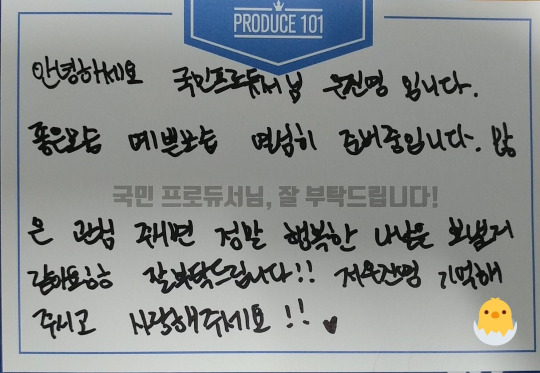 PRODUCE 101
안녕하세요 국민프로듀서님 윤진영 입니다.
좋은모습 예쁜모습 열심히 준비중입니다. 많
국민 프로듀서님, 잘 부탁드립니다!
은 관심 주시면 정말 행복한 나날을 보낼거
같아요ㅎㅎ 잘부탁드립니다!! 저윤진영 기억해
주시고 사랑해주세요!!